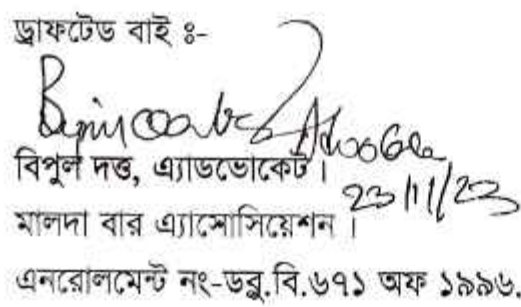 ড্রাফটেড বাই ঃ-
বিপুল দত্ত, এ্যাডভোকেট।
23/11/23
মালদা বার এ্যাসোসিয়েশন।
এনরোলমেন্ট নং-ডব্লু.বি.৬৭১ অফ ১৯৯৬.